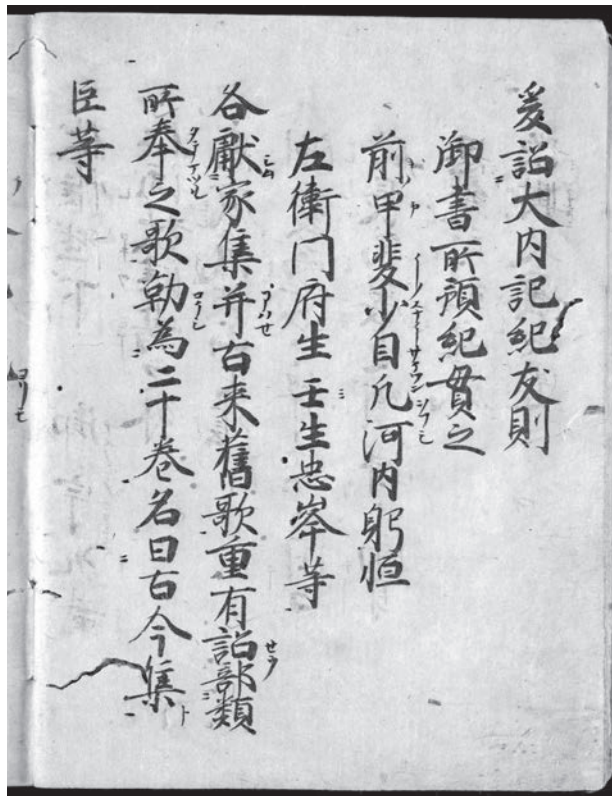 爰詔大内記紀友則
御書所預紀貫之
前甲斐少目凡河内躬恒
左衛門府生壬生忠岑等
各獻家集并古来舊歌重有詔部類
所奉之歌勒為二十巻名曰古今集
臣等